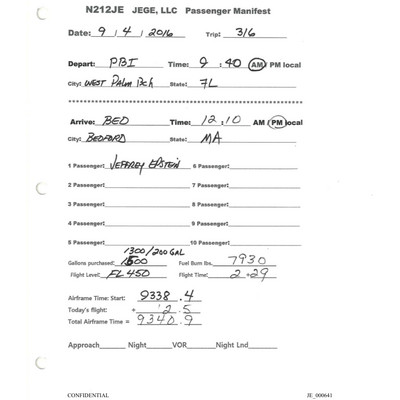 N212JE JEGE, LLC Passenger Manifest
Date: 9 / 4 / 2016 Trip: 316
Depart: PBI Time: 9 : 40 AM / PM local
City: WEST Palm Bch State: FL
Arrive: BED Time: 12 : 10 AM / PM local
City: BEDFORD State: MA
1 Passenger: JEFFREY EPSTEIN 6 Passenger:
2 Passenger: 7 Passenger:
3 Passenger: 8 Passenger:
4 Passenger: 9 Passenger:
5 Passenger: 10 Passenger:
1300/200 GAL
Gallons purchased: 1500 Fuel Burn lbs. 7930
Flight Level: FL450 Flight Time: 2 : 29
Airframe Time: Start: 9338 . 4
Today's flight: + 2 . 5
Total Airframe Time = 9340 . 9
Approach Night VOR Night Lnd
CONFIDENTIAL JE_000641